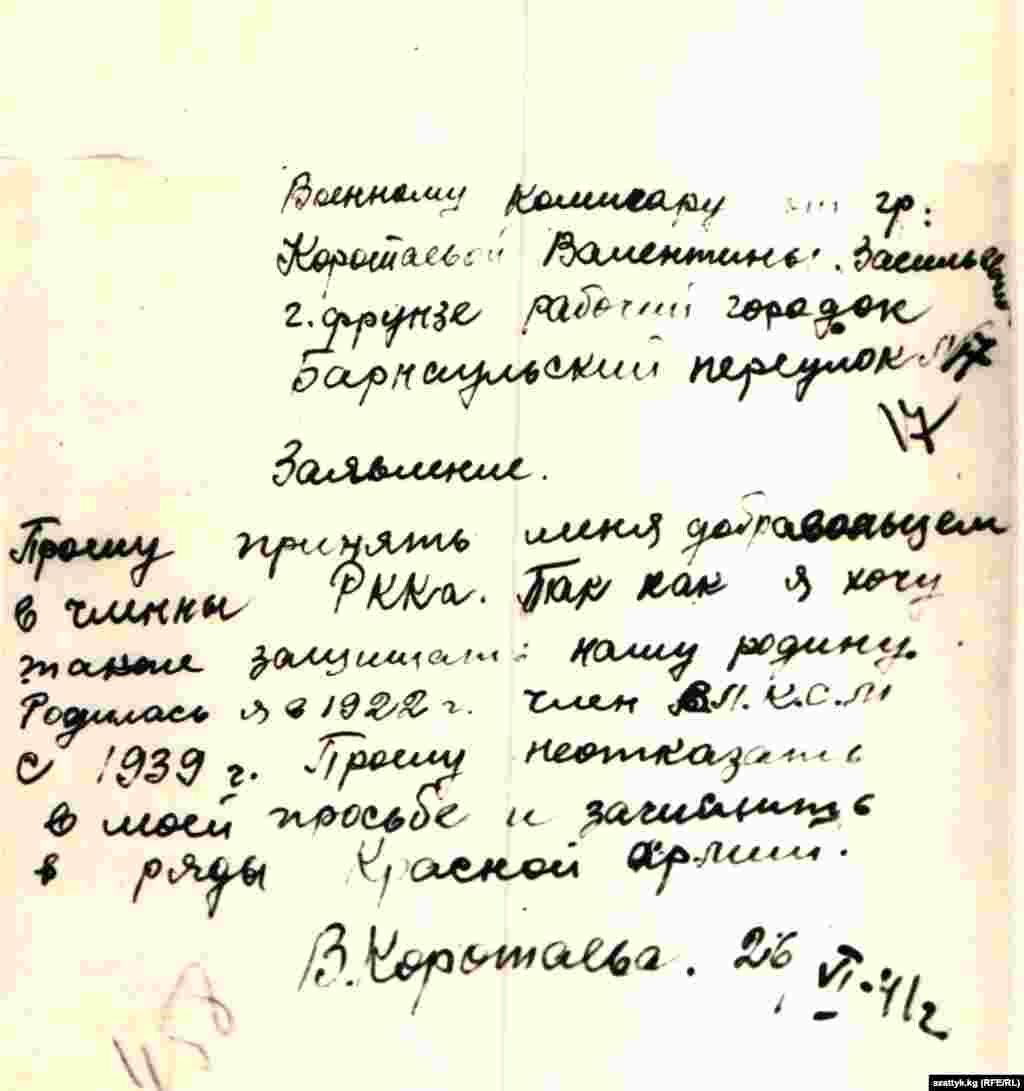 Военному комисару от гр:
Коротаевой Валентины. Васильевны
г. Фрунзе рабочий городок
Барнаульский переулок №17
17
Заявление.
Прошу принять меня добравольцем
в членны РККа. Так как я хочу
также защищать нашу родину.
Родилась я в 1922 г. член В.Л.К.С.М
с 1939 г. Прошу неотказать
в моей просьбе и зачислить
в ряды Красной армии.
В. Коротаева. 26 VI-41г
azattyk.kg (RFE/RL)